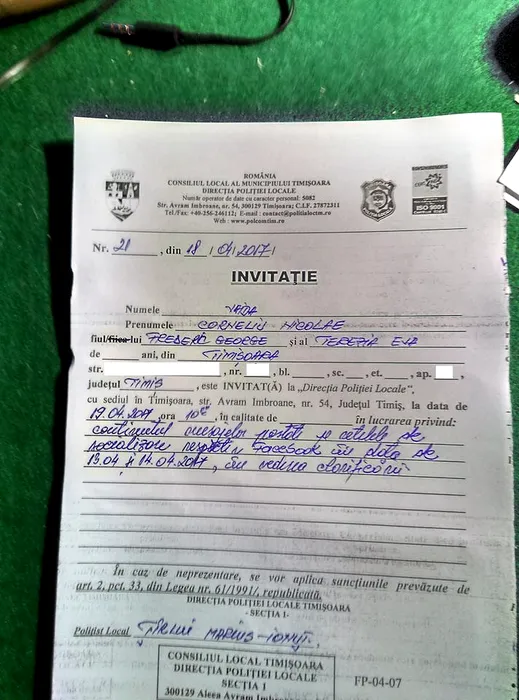 ROMÂNIA
CONSILIUL LOCAL AL MUNICIPIULUI TIMIȘOARA
DIRECȚIA POLIȚIEI LOCALE
Număr operator de date cu caracter personal. 5082
Str. Avram Imbroane, nr. 54, 300129 Timișoara; C.I.F. 27872311
Tel./Fax: +40-256-246112; E-mail : contact@politialoctm.ro
Web : www.polcomtim.ro
ISO 9001
Nr. 21 , din 18 / 04 / 2017 /
INVITAȚIE
Numele VAIDA
Prenumele CORNELIU NICOLAE
fiul/fiica lui GEORGE și al TEREZIA EVA
de ani, din TIMIȘOARA
str. , nr. , bl. , sc. , et. , ap.
județul TIMIȘ , este INVITAT(Ă) la „Direcția Poliției Locale",
cu sediul în Timișoara, str. Avram Imbroane, nr. 54, Județul Timiș, la data de
19.04.2017 ora 10 , în calitate de în lucrarea privind:
conținutul mesajelor postate pe rețelele de
socializare Facebook în data de
13.04 și 14.04.2017, în vederea clarificării
În caz de neprezentare, se vor aplica sancțiunile prevăzute de
art. 2, pct. 33, din Legea nr. 61/1991/, republicată.
DIRECȚIA POLIȚIEI LOCALE TIMIȘOARA
- SECȚIA I-
Polițist Local MARIUS-IONUȚ
CONSILIUL LOCAL TIMIȘOARA
DIRECȚIA POLIȚIEI LOCALE
SECȚIA I
300129 Aleea Avram
FP-04-07